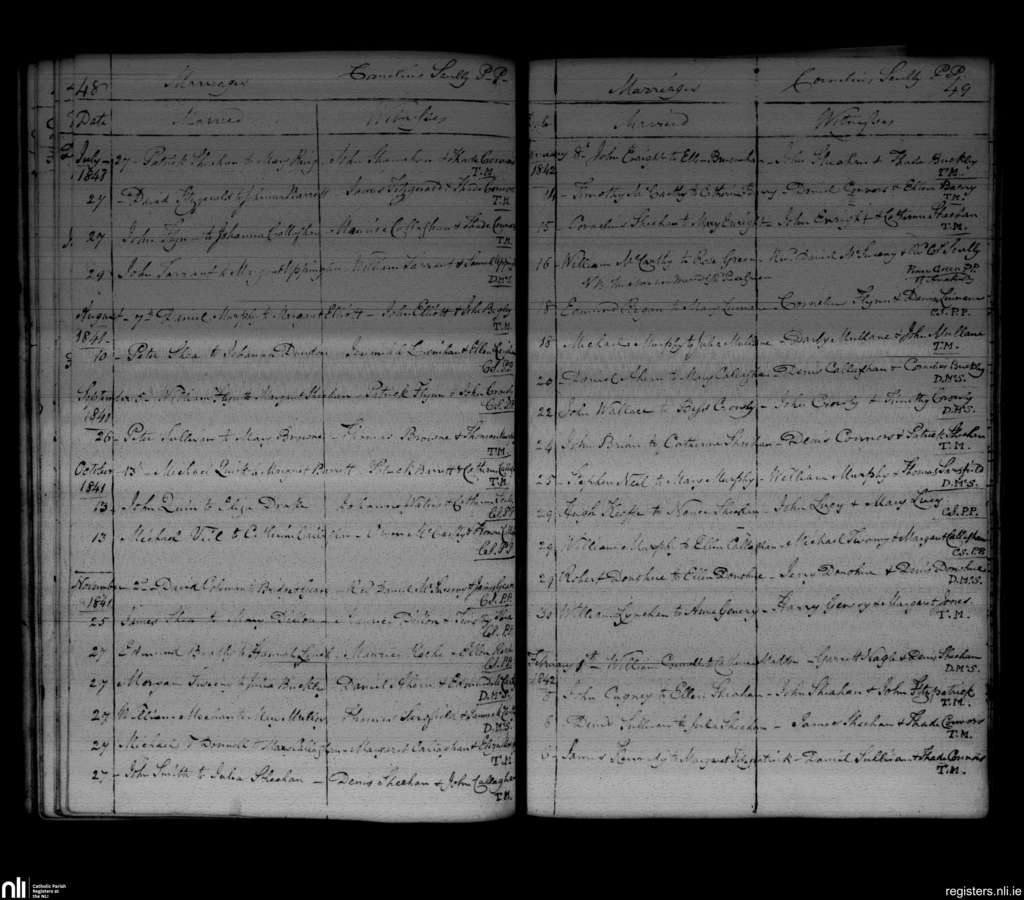 48 Marriages Cornelius Scully P.P.
Date Married Witnesses
July 27 - Patrick Sheehan to Mary King - John Shanahan & Thade Connors
1841 T.M.
27 - David Fitzgerald to Johanna Barrett - James Fitzgerald & Thade Connors
T.M.
27 John Flynn to Johanna Callaghan - Maurice Callaghan & Thade Connors
T.M.
29 John Tarrant to Margaret Uppington - William Tarrant &
D.McS.
August - 7th Daniel Murphy to Margaret Elliott - John Elliott & John Begley
1841. T.M.
10 - Peter Shea to Johanna - Jeremiah & Ellen
C.S.P.P.
September 5 - William Flynn to Margaret Sheehan - Patrick Flynn & John
1841 C.S.P.P.
26 - Peter Sullivan to Mary Browne - Thomas Browne & Thomas
T.M.
October 13 - Michael Quirk to Margaret Barrett - Patrick Barrett & Catherine
1841 T.M.
13 - John Quin to Eliza Drake & Catherine
C.S.P.P.
13 Michael to Catherine - Owen McCarthy &
C.S.P.P.
November - 2nd David Coleman to Bridget Green - Revd Daniel McSweeny & James Green
1841 C.S.P.P.
25 James Shea to Mary Dillon - James Dillon & Timothy Shea
C.S.P.P.
27 Edmund to Hannah Lynch - Maurice Roche & Ellen Roche
C.S.P.P.
27 Morgan Twomy to Julia Buckley - Daniel Ahern & Edmund
D.McS.
27 William Meehan to Mary - Thomas Sarsfield &
D.McS.
27 Michael O'Donnell to Mary Callaghan - Margaret Callaghan &
T.M.
27 - John Smith to Julia Sheehan - Denis Sheehan & John Callaghan
T.M.
Marriages Cornelius Scully P.P.
49
Date Married Witnesses
January 8th John Enright to Ellen - John Sheehan & Thade Buckley
1842 T.M.
11 - Timothy McCarthy to Catherine Barry - Daniel Connors & Ellen Barry
T.M.
15 Cornelius Sheehan to Mary Enright - John Enright & Catherine Sheehan
T.M.
16 - William McCarthy to Rose Green - Revd Daniel McSweeny & Scully
N.B.
8 Edmund Regan to Mary - Cornelius Flynn & Denis
C.S.P.P.
18 Michael Murphy to Julia Mullane - Darby Mullane & John Mullane
T.M.
20 - Daniel Ahern to Mary Callaghan - Denis Callaghan & Cornelius Buckley
D.McS.
22 John Wallace to Bess Crowly - John Crowly & Timothy Crowly
D.McS.
24 John Brian to Catherine Sheehan - Denis Connors & Patrick Sheehan
T.M.
25 - Stephen Neil to Mary Murphy - William Murphy & Thomas Sarsfield
D.McS.
29 Hugh Keefe to Nancy Sheehan - John Lucy & Mary Lucy
C.S.P.P.
29 William Murphy to Ellen Callaghan - Michael Twomy & Margaret Callaghan
C.S.P.P.
29 Robert Donohue to Ellen Donohue - Jerry Donohue & Denis Donohue
D.McS.
30 William Lynchan to Anne Genery - Harry Genery & Margaret Jones
T.M.
February 1st - William Connell to Catherine Walsh - Garrett Nagle & Denis Sheehan
1842 D.McS.
5 John Cagney to Ellen Sheahan - John Sheahan & John Fitzpatrick
T.M.
6 Denis Sullivan to Julia Sheehan - James Sheehan & Thade Connors
T.M.
6 James Kennedy to Margaret Fitzpatrick - Daniel Sullivan & Thade Connors
T.M.
nli Catholic Parish
Registers at
the NLI
registers.nli.ie